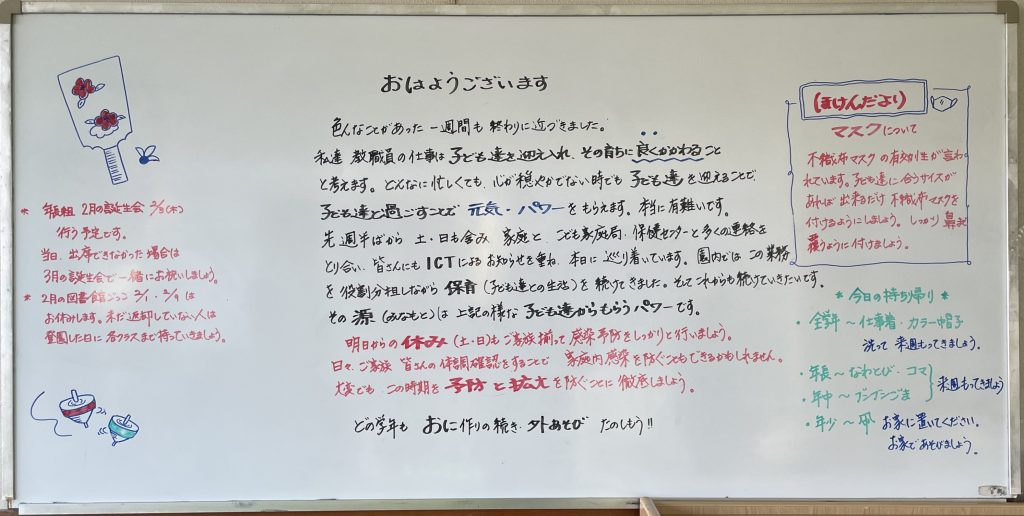 おはようございます
色んなことがあった一週間も終わりに近づきました。
私達 教職員の仕事は子ども達を迎え入れ、その育ちに良くかかわること
と考えます。どんなに忙しくても、心が穏やかでない時でも子ども達を迎えることで、
子ども達と過ごすことで 元気・パワーをもらえます。本当に有難いです。
先週半ばから 土・日も含み 家庭と、こども家庭局、保健センターと多くの連絡を
とり合い、皆さんにもICTによるお知らせを重ね、本日に巡り着いています。園内では この業務
を役割分担しながら 保育(子ども達との生活)を続けてきました。そしてこれからも続けていきたいです。
その 源(みなもと)は 上記の様な 子ども達からもらうパワーです。
明日からの休み(土・日)もご家族揃って感染予防をしっかりと行いましょう。
日々、ご家族 皆さんの体調確認をすることで 家庭内感染を防ぐこともできるかもしれません。
大変でも、この時期を予防と拡大を防ぐことに徹底しましょう。
どの学年も おに作りの続き、外あそび たのしもう!!
* 年長組 2月の誕生会 2/3(木)
行う予定です。
当日、出席できなかった場合は
3月の誕生会で一緒にお祝いしましょう。
* 2月の図書館ごっこ 2/1・2/9 は
お休みします。未だ返却していない人は
登園した日に各クラスまで持っていきましょう。
ほけんだより
マスクについて
不織布マスクの有効性が言わ
れています。子ども達に合うサイズが
あれば 出来るだけ 不織布マスクを
付けるようにしましょう。しっかり鼻まで
覆うように付けましょう。
* 今日の持ち帰り *
・全学年〜仕事着・カラー帽子
洗って 来週もってきましょう。
・年長〜なわとび・コマ
・年中〜ブンブンごま
来週もってきましょう
・年少〜凧 お家に置いてください。
お家であそびましょう。